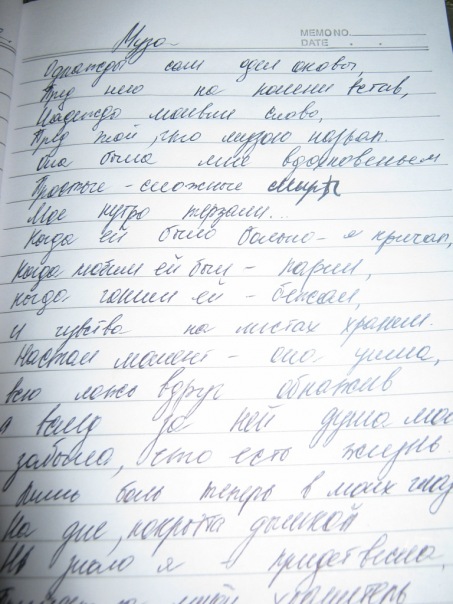 Муза
MEMO NO.
DATE . .
Однажды сам одел оковы
Пред нею на колени встав,
Надежда молвила слово,
Пред той, что музою назвал.
Она была мне вдохновеньем
Простые - сложные миры
Мое нутро терзали...
Когда ей было больно - я кричал,
Когда любим ей был - парил,
когда гоним ей - бежал,
и чувства на листах хранил.
Настал момент - она ушла,
всю ложь вдруг обнажив
вслед за ней душа моя
забыла, что есть жизнь.
Лишь боль теперь в моих глаз
На дне, покрыта дымкой
Не знаю я - придет весна,
хранитель